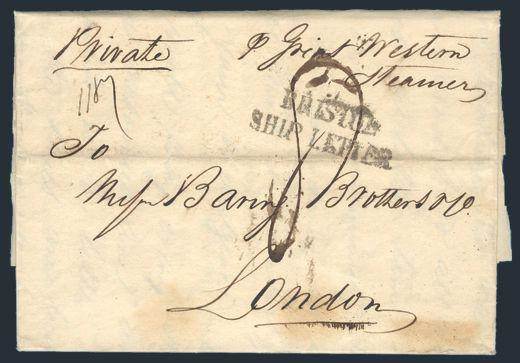 Private
P Great Western
Steamer
1187
BRISTOL
SHIP LETTER
8
To
Messrs Baring Brothers & Co.
London